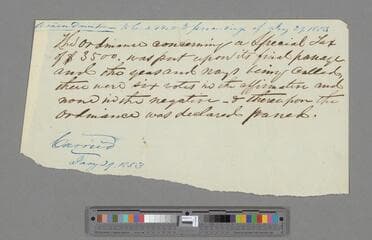 to be added to proceedings of Jany 29, 1853
The Ordinance concerning a Special Tax
of $3500. was put upon its final passage
and the yeas and nays being called,
there were six votes in the affirmative and
none in the negative & thereupon the
ordinance was declared passed.
Carried
Jany 29. 1853